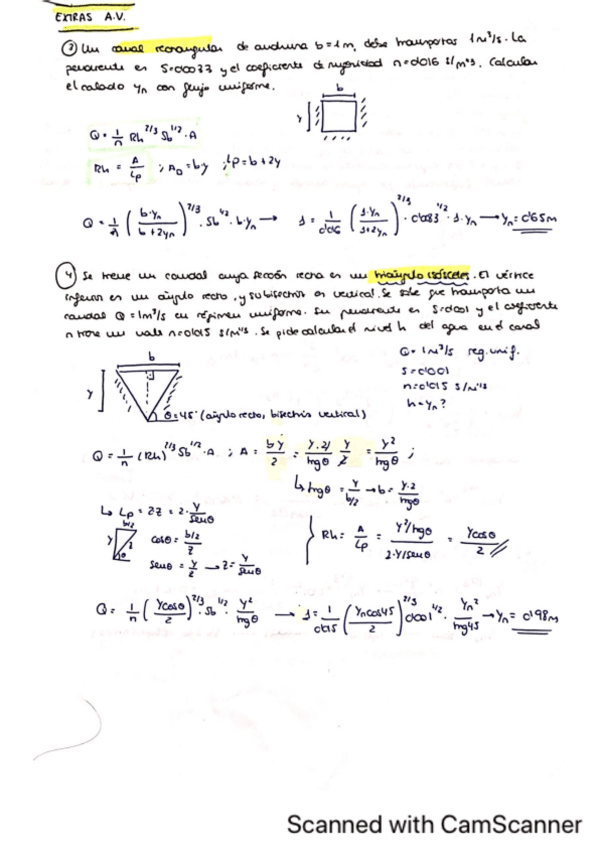 EXTRAS A.V.
③ Un canal rectangular de anchura b=1m, debe transportar 1m³/s. La
pendiente es S=0'0033 y el coeficiente de rugosidad n=0'016 s/m^1/3. Calcular
el calado yn con flujo uniforme.
b
y
Q = 1/n Rh^2/3 Sb^1/2 · A
Rh = A/Lp ; A0 = by ; Lp = b+2y
Q = 1/n (b·yn / b+2yn)^2/3 · Sb^1/2 · b·yn → 1 = 1/0'016 (1·yn / 1+2yn)^2/3 · 0'0033^1/2 · 1·yn → yn = 0'65m
④ Se tiene un caudal cuya sección recta es un triángulo isósceles. El vértice
inferior es un ángulo recto, y su bisectriz es vertical. Se sabe que transporta un
caudal Q=1m³/s en régimen uniforme. Su pendiente es S=0'001 y el coeficiente
n tiene un valor n=0'015 s/m^1/3. Se pide calcular el nivel h del agua en el canal
b
y
θ=45° (ángulo recto, bisectriz vertical)
Q=1m³/s reg. unif.
S=0'001
n=0'015 s/m^1/3
h=yn?
Q = 1/n (Rh)^2/3 Sb^1/2 · A ; A = by/2 = y·2/tngθ · y/2 = y²/tngθ ;
↳ tngθ = y/(b/2) → b = y·2/tngθ
↳ Lp = 2z = 2· y/senθ
b/2
y
z
θ
cosθ = (b/2)/z
senθ = y/z → z = y/senθ
Rh = A/Lp = (y²/tngθ)/(2·y/senθ) = ycosθ/2
Q = 1/n (ycosθ/2)^2/3 · Sb^1/2 · y²/tngθ → 1 = 1/0'015 (yn cos45/2)^2/3 0'001^1/2 · yn²/tng45 → yn = 0'98m
Scanned with CamScanner